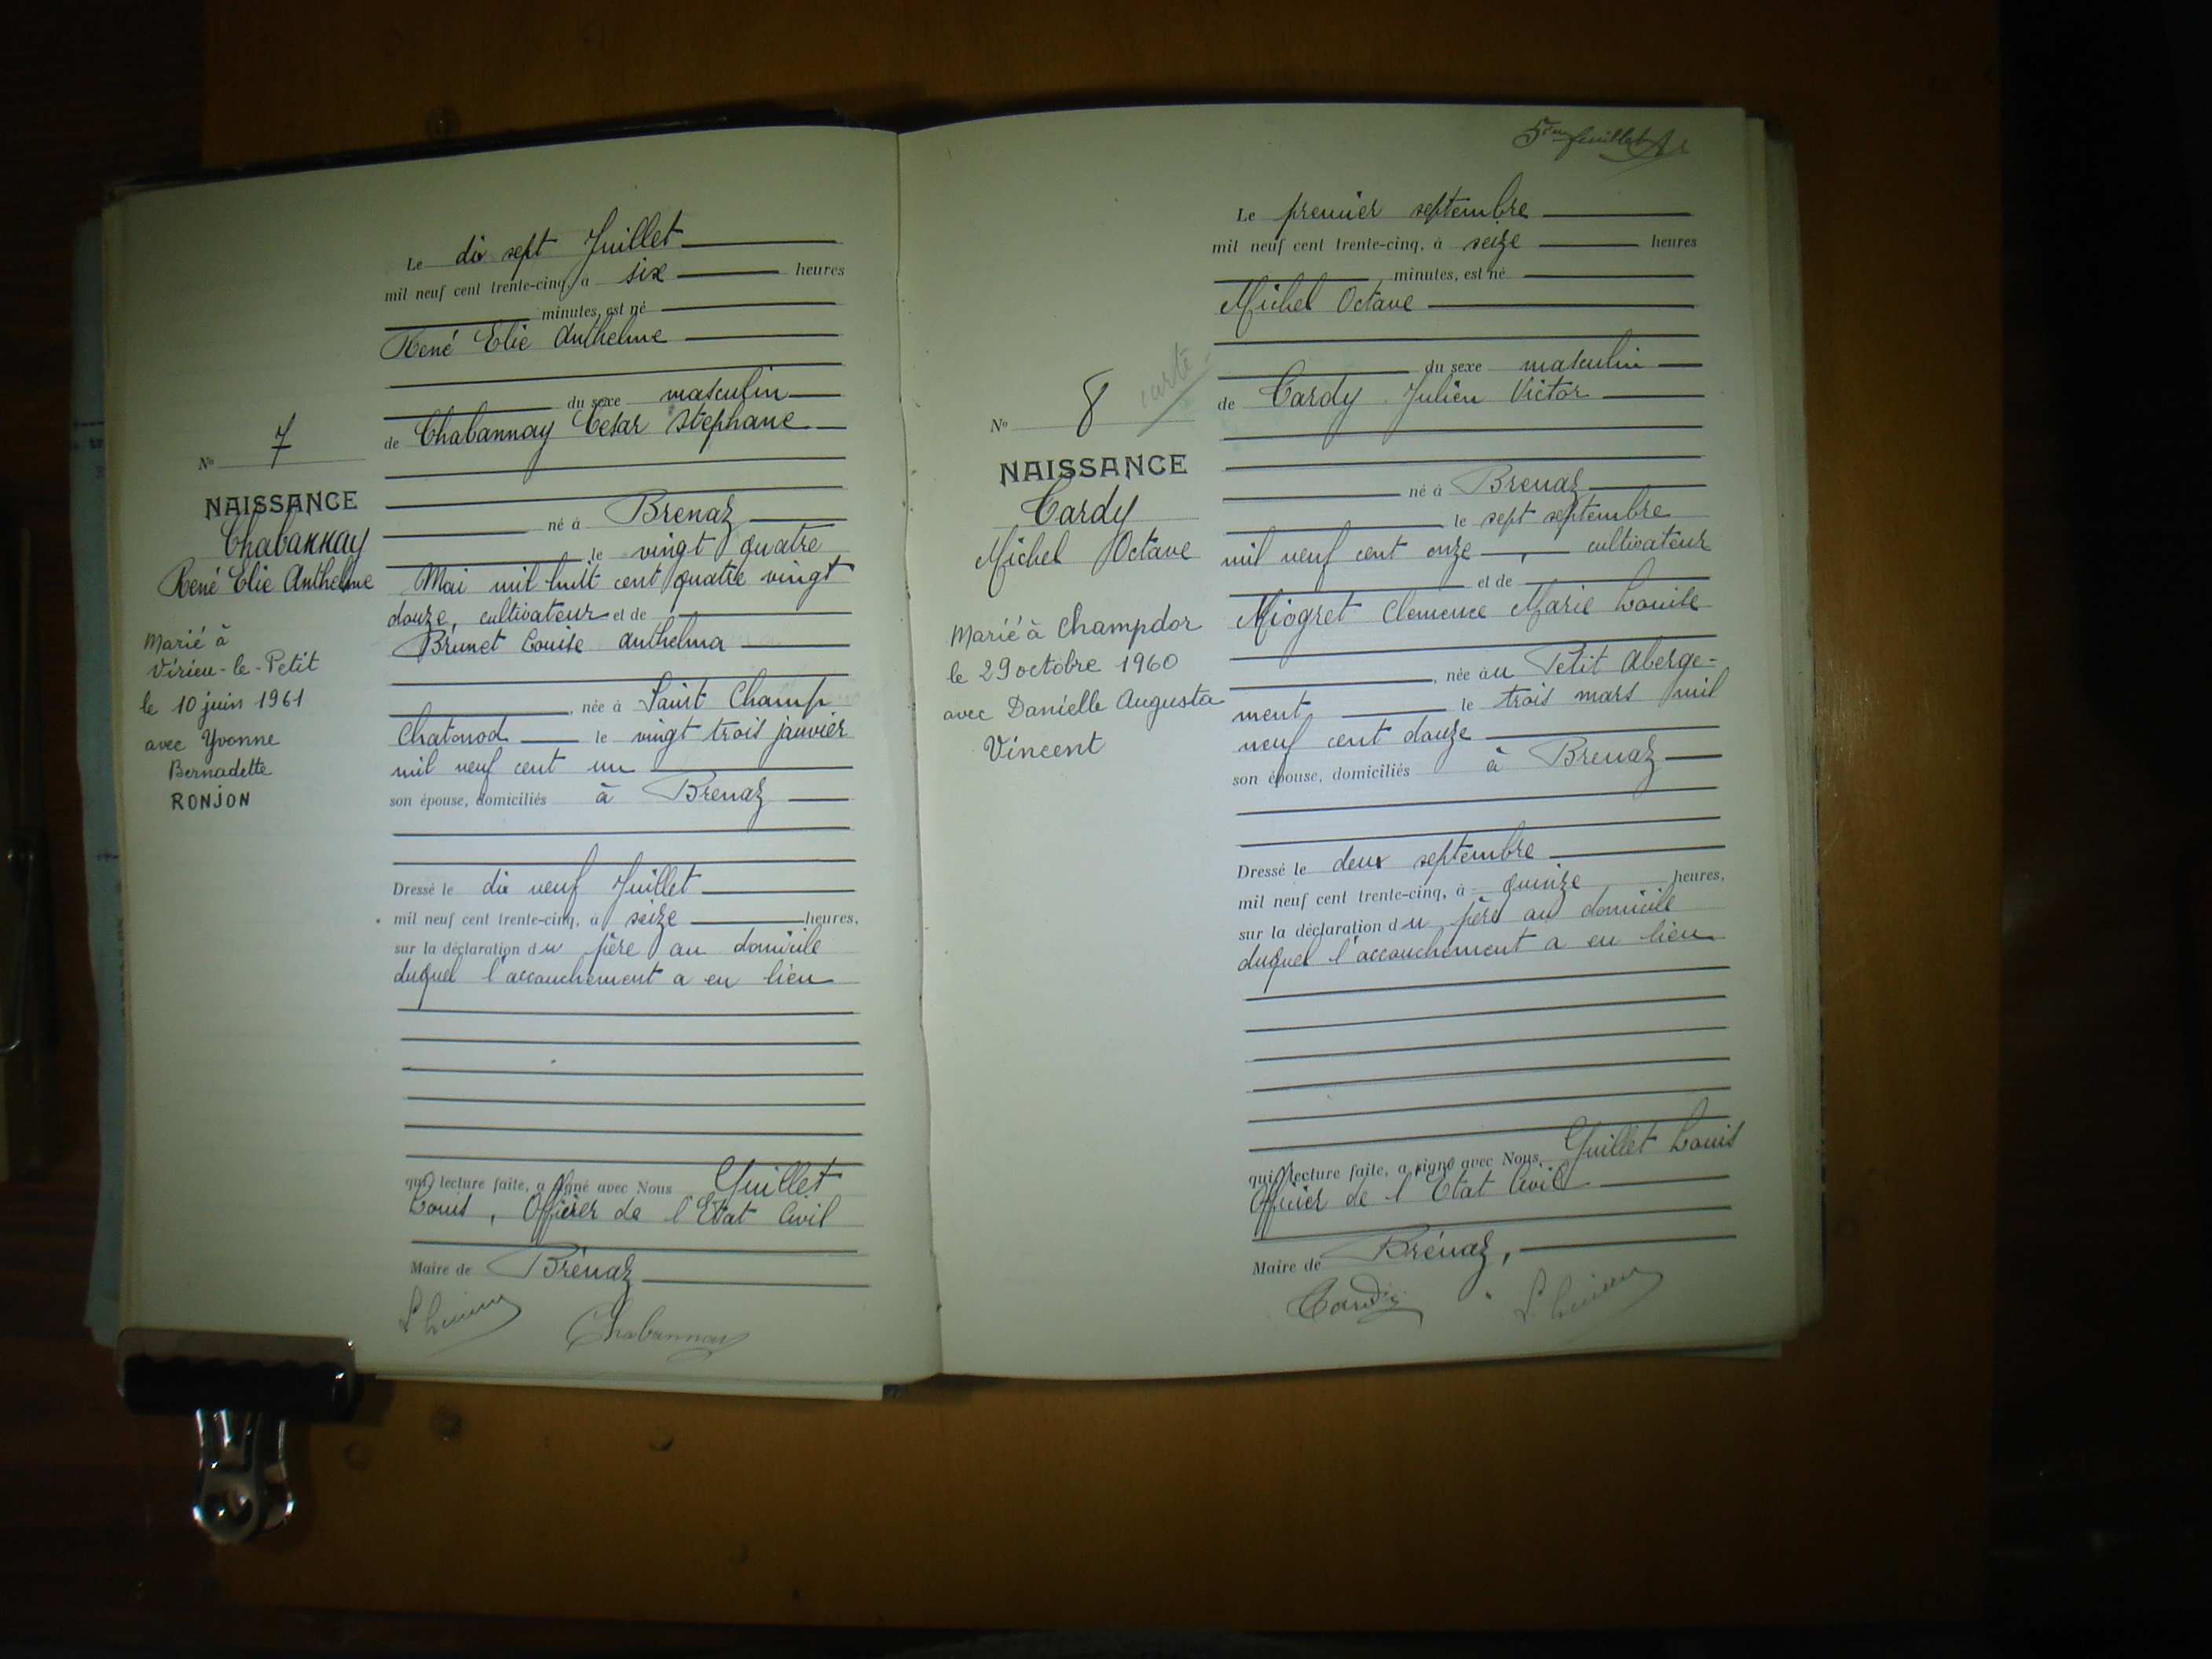 Le dix sept Juillet
mil neuf cent trente-cinq, à six heures
minutes, est né
René Elie Anthelme
du sexe masculin
de Chabannay César Stéphane
né à Brenaz
le vingt quatre
Mai mil huit cent quatre vingt
douze, cultivateur et de
Brunet Louise Anthelma
, née à Saint Champ
Chatonod le vingt trois janvier
mil neuf cent un
son épouse, domiciliés à Brenaz
Dressé le dix neuf Juillet
mil neuf cent trente-cinq, à seize heures,
sur la déclaration du père au domicile
duquel l'accouchement a eu lieu
qui, lecture faite, a signé avec Nous Guillet
Louis, Officier de l'Etat Civil
Maire de Brénaz
Chabannay
No 7
NAISSANCE
Chabannay
René Elie Anthelme
Marié à
Virieu-le-Petit
le 10 juin 1961
avec Yvonne
Bernadette
RONJON
5ème feuillet
Le premier septembre
mil neuf cent trente-cinq, à seize heures
minutes, est né
Michel Octave
du sexe masculin
de Cardy Julien Victor
né à Brenaz
le sept septembre
mil neuf cent onze, cultivateur
et de
Miogret Clémence Marie Louise
, née au Petit Aberge-
ment le trois mars mil
neuf cent douze
son épouse, domiciliés à Brenaz
Dressé le deux septembre
mil neuf cent trente-cinq, à quinze heures,
sur la déclaration du père au domicile
duquel l'accouchement a eu lieu
qui, lecture faite, a signé avec Nous Guillet Louis
Officier de l'Etat Civil
Maire de Brénaz,
Cardy
carte
No 8
NAISSANCE
Cardy
Michel Octave
Marié à Champdor
le 29 octobre 1960
avec Danielle Augusta
Vincent